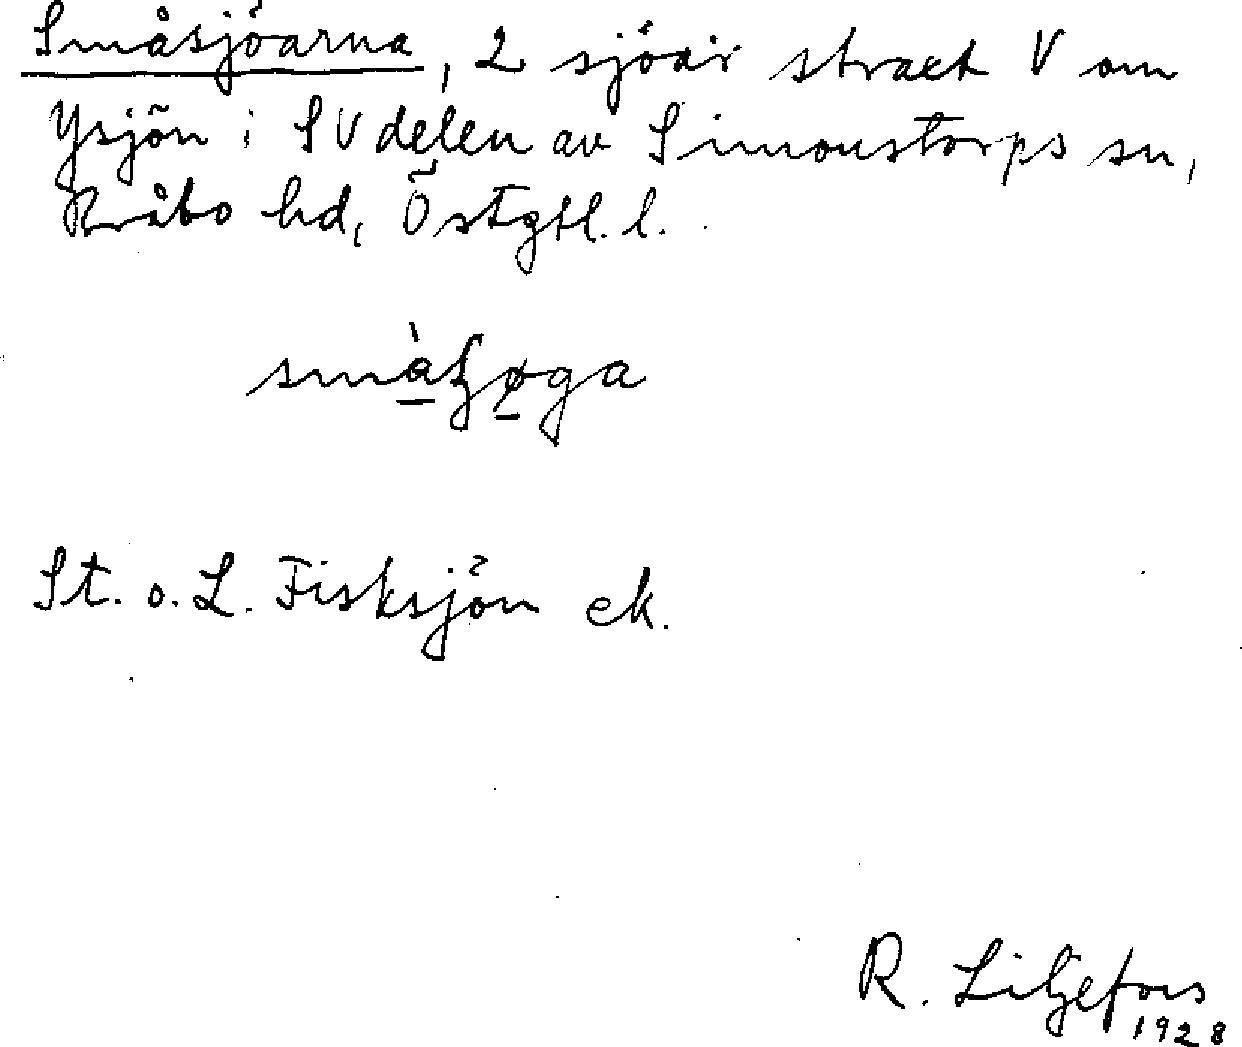 Småsjöarna, 2 sjöar strax V om
Ysjön i SV delen av Simonstorps sn,
Bråbo hd, Östgtl. l.
St. o. L. Fisksjön ek.
R. Liljefors
1928